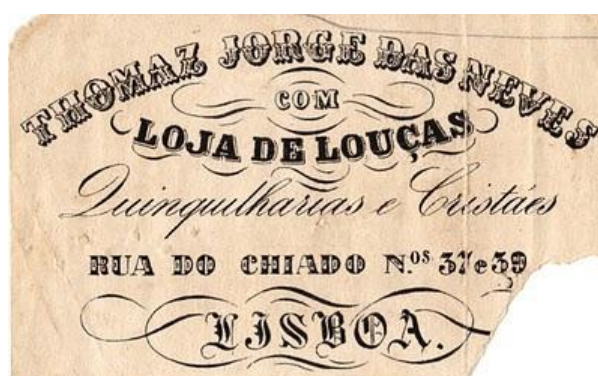 THOMAZ JORGE DAS NEVES
COM
LOJA DE LOUÇAS
Quinquilharias e Cristáes
RUA DO CHIADO N.OS 37 e 39
LISBOA.